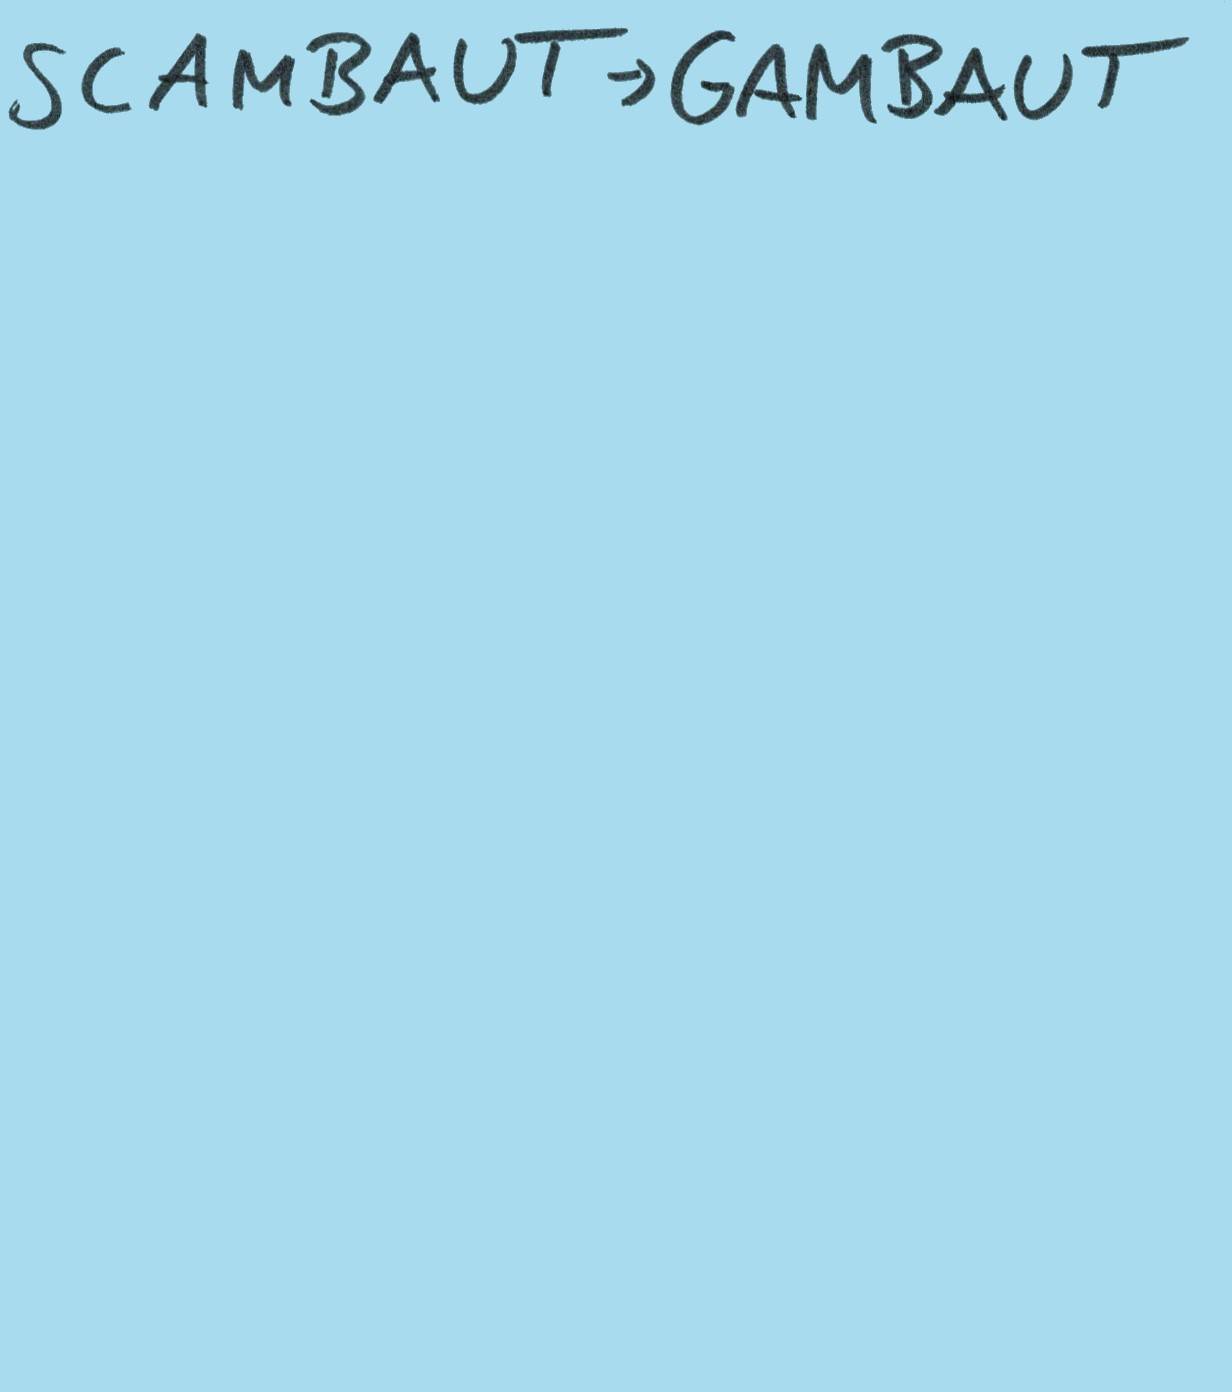 SCAMBAUT → GAMBAUT